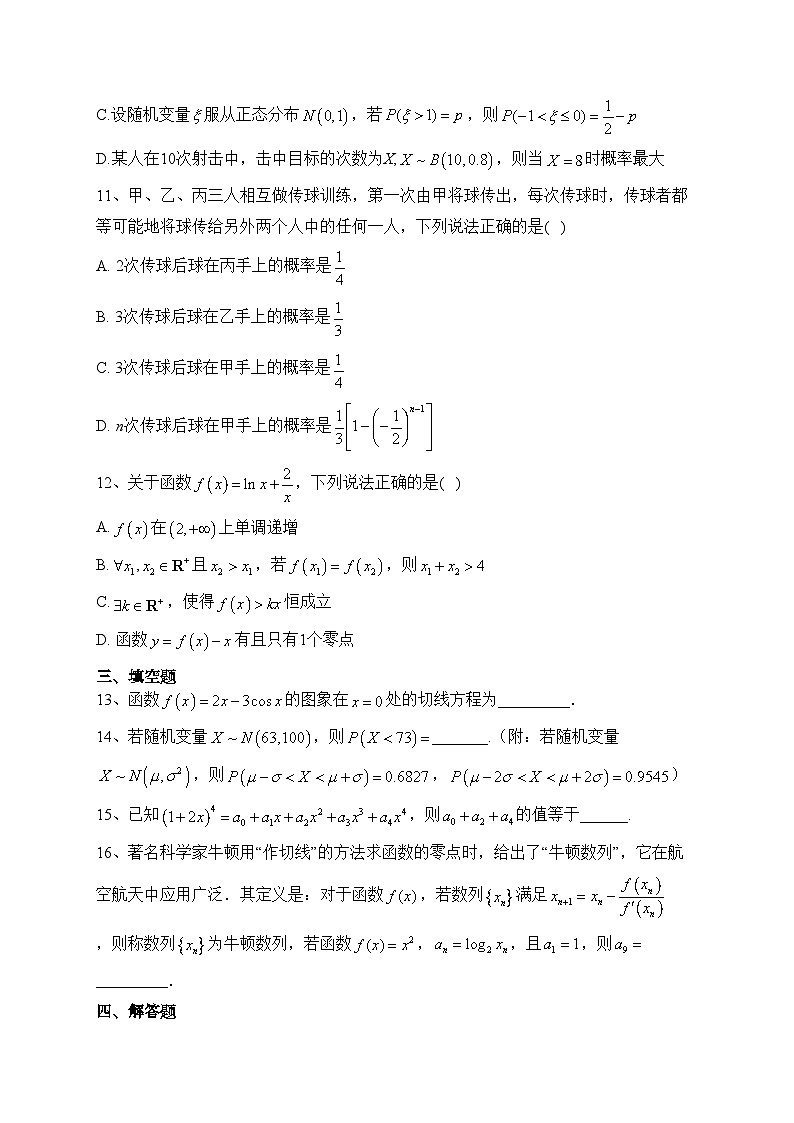 C.设随机变量ξ服从正态分布N(0,1)，若P(ξ>1)=p，则P(-1<ξ≤0)=1/2-p
D.某人在10次射击中，击中目标的次数为X, X~B(10,0.8)，则当X=8时概率最大
11、甲、乙、丙三人相互做传球训练，第一次由甲将球传出，每次传球时，传球者都
等可能地将球传给另外两个人中的任何一人，下列说法正确的是( )
A. 2次传球后球在丙手上的概率是1/4
B. 3次传球后球在乙手上的概率是1/3
C. 3次传球后球在甲手上的概率是1/4
D. n次传球后球在甲手上的概率是1/3[1-(-1/2)^(n-1)]
12、关于函数f(x)=ln x+2/x，下列说法正确的是( )
A. f(x)在(2,+∞)上单调递增
B. ∀x₁,x₂∈R⁺且x₂>x₁，若f(x₁)=f(x₂)，则x₁+x₂>4
C. ∃k∈R⁺，使得f(x)>kx恒成立
D. 函数y=f(x)-x有且只有1个零点
三、填空题
13、函数f(x)=2x-3cos x的图象在x=0处的切线方程为_________．
14、若随机变量X~N(63,100)，则P(X<73)=_______.（附：若随机变量
X~N(μ,σ²)，则P(μ-σ<X<μ+σ)=0.6827，P(μ-2σ<X<μ+2σ)=0.9545）
15、已知(1+2x)⁴=a₀+a₁x+a₂x²+a₃x³+a₄x⁴，则a₀+a₂+a₄的值等于______.
16、著名科学家牛顿用“作切线”的方法求函数的零点时，给出了“牛顿数列”，它在航
空航天中应用广泛．其定义是：对于函数f(x)，若数列{xₙ}满足xₙ₊₁=xₙ-f(xₙ)/f′(xₙ)
，则称数列{xₙ}为牛顿数列，若函数f(x)=x²，aₙ=log₂xₙ，且a₁=1，则a₉=
_________．
四、解答题